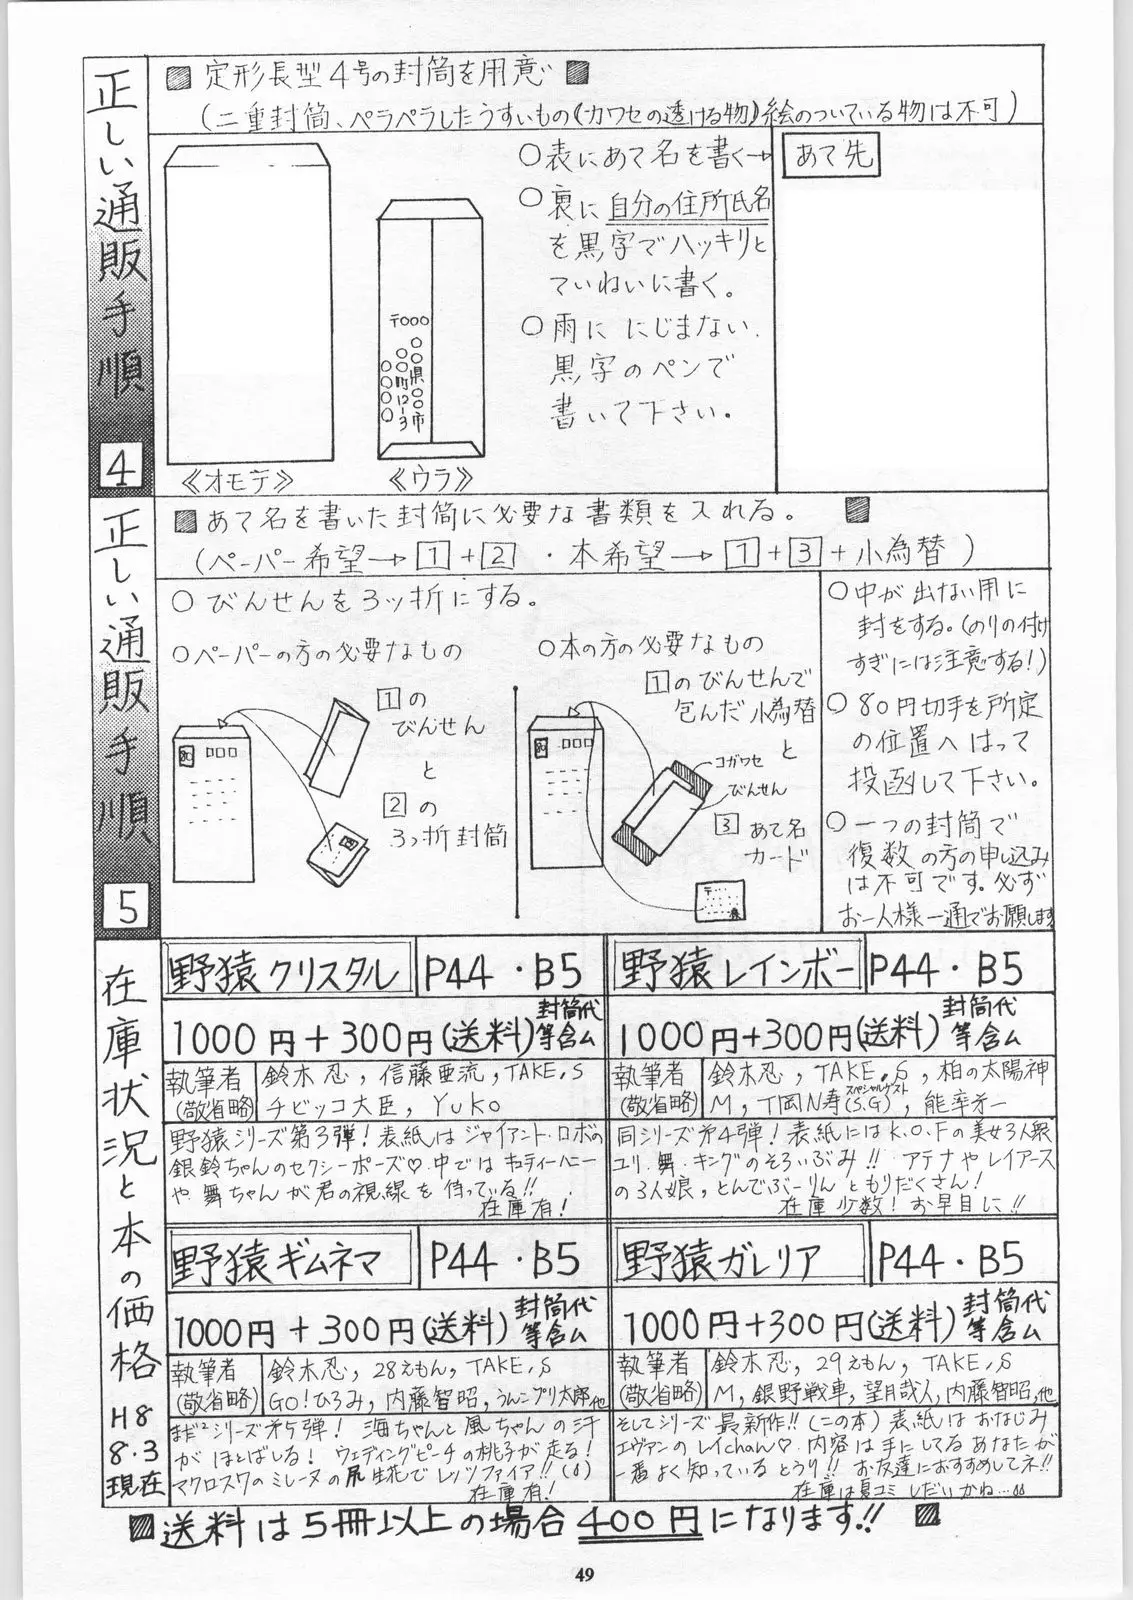 正しい通販手順 4
定形長型4号の封筒を用意
(二重封筒、ペラペラしたうすいもの《カワセの透ける物》絵のついている物は不可)
〒000
《オモテ》
《ウラ》
○表にあて名を書く→
○裏に自分の住所氏名
を黒字でハッキリと
ていねいに書く。
○雨ににじまない
黒字のペンで
書いて下さい。
あて先
正しい通販手順 5
あて名を書いた封筒に必要な書類を入れる。
(ペーパー希望→1+2・本希望→1+3+小為替)
○びんせんを3ッ折にする。
○ペーパーの方の必要なもの
1の
びんせん
と
2の
3っ折封筒
80
○本の方の必要なもの
1のびんせんで
包んだ小為替
と
コガワセ
びんせん
3あて名
カード
80
〒
○中が出ない用に
封をする。(のりの付け
すぎには注意する!)
○80円切手を所定
の位置へはって
投函して下さい。
○一つの封筒で
復数の方の申し込み
は不可です。必ず
お一人様一通でお願します
在庫状況と本の価格
H8
8.3
現在
野猿クリスタル
P44・B5
1000円+300円(送料)封筒代等含ム
執筆者
(敬省略)
鈴木忍,信藤亜流,TAKE.S
チビッコ大臣,YuKo
野猿シリーズ第3弾!表紙はジャイアント・ロボの
銀鈴ちゃんのセクシーポーズ♡中ではキューティーハニー
や舞ちゃんが君の視線を待っている!!
在庫有!
野猿レインボー
P44・B5
1000円+300円(送料)封筒代等含ム
執筆者
(敬省略)
鈴木忍,TAKE.S,柏の太陽神
M,T岡N寿(スペシャルゲスト S.G),能率才一
同シリーズ第4弾!表紙にはK.O.Fの美女3人衆
ユリ・舞・キングのそろいぶみ!!アテナやレイアース
の3人娘,とんでぶーりんともりだくさん!
在庫少数!お早目に!!
野猿ギムネマ
P44・B5
1000円+300円(送料)封筒代等含ム
執筆者
(敬省略)
鈴木忍,28えもん,TAKE.S
GO!ひろみ,内藤智昭,うんこブリ太郎,他
まだ²シリーズ第5弾!海ちゃんと風ちゃんの汗
がほとばしる!ウェディングピーチの桃子が走る!
マクロス7のミレーヌの尻生花でレッツファイア!!(δ)
在庫有!
野猿ガレリア
P44・B5
1000円+300円(送料)封筒代等含ム
執筆者
(敬省略)
鈴木忍,29えもん,TAKE.S
M,銀野戦車,望月哉人,内藤智昭,他
そしてシリーズ最新作!!(この本)表紙はおなじみ
エヴァンのレイchan♡内容は手にしてるあなたが
一番よく知っているとうり!!お友達におすすめしてネ!!
在庫は夏コミしだいかね…δδ
送料は5冊以上の場合400円になります!!
49